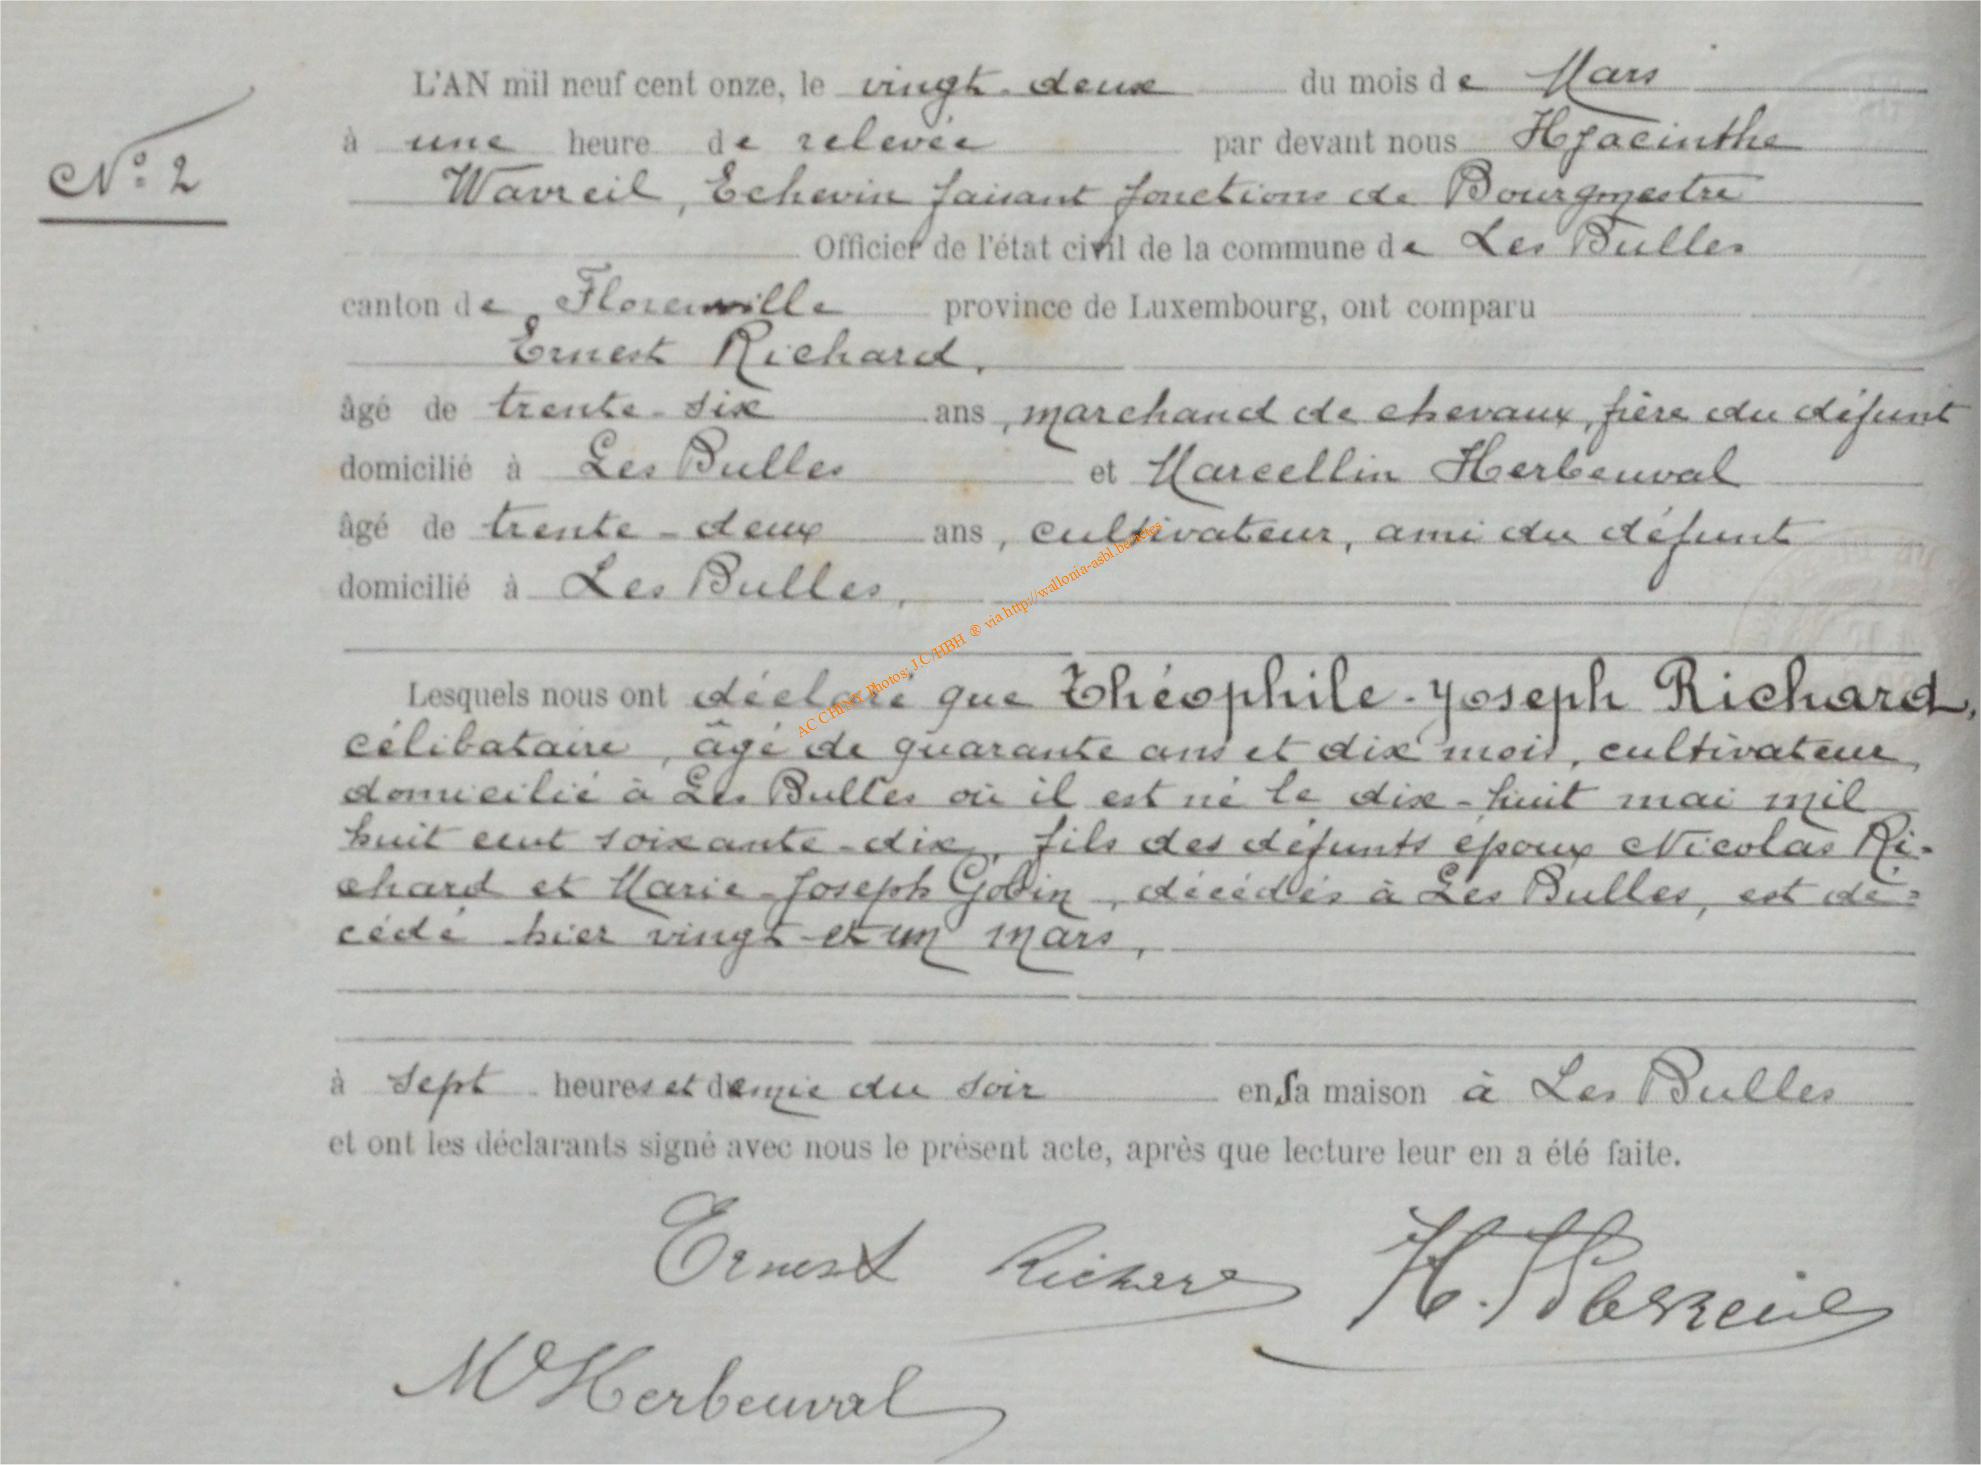 N° 2
L'AN mil neuf cent onze, le vingt-deux du mois de Mars
à une heure de relevée par devant nous Hyacinthe
Wavreil, Echevin faisant fonctions de Bourgmestre
Officier de l'état civil de la commune de Les Bulles
canton de Florenville province de Luxembourg, ont comparu
Ernest Richard,
âgé de trente-six ans, marchand de chevaux, frère du défunt
domicilié à Les Bulles et Marcellin Herbeuval
âgé de trente-deux ans, cultivateur, ami du défunt
domicilié à Les Bulles,
AC CHINY Photos; J.C/HBH ® via http://wallonia-asbl.be/actes
Lesquels nous ont déclaré que Théophile-Joseph Richard,
célibataire, âgé de quarante ans et dix mois, cultivateur,
domicilié à Les Bulles où il est né le dix-huit mai mil
huit cent soixante-dix, fils des défunts époux Nicolas Ri-
chard et Marie-Joseph Gobin, décédés à Les Bulles, est dé=
cédé hier vingt-et-un mars,
à sept heures et demie du soir en sa maison à Les Bulles
et ont les déclarants signé avec nous le présent acte, après que lecture leur en a été faite.
Ernest Richard H. Wavreil
M Herbeuval